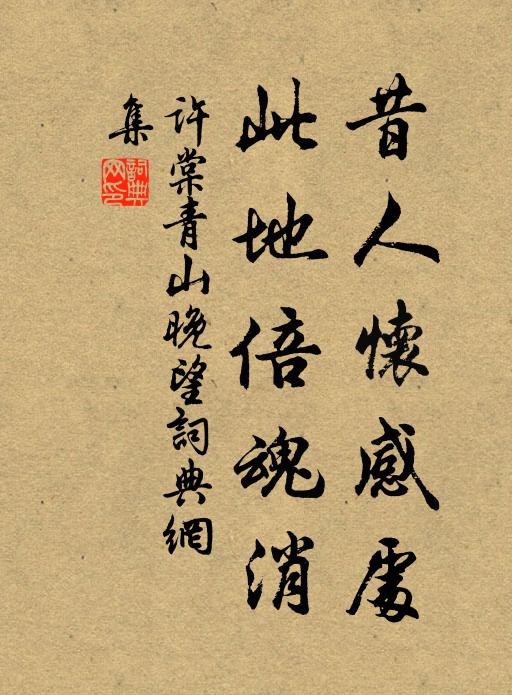 昔人懷感處
此地倍魂消
許棠青山晚望詞典網
集
詞典
网印